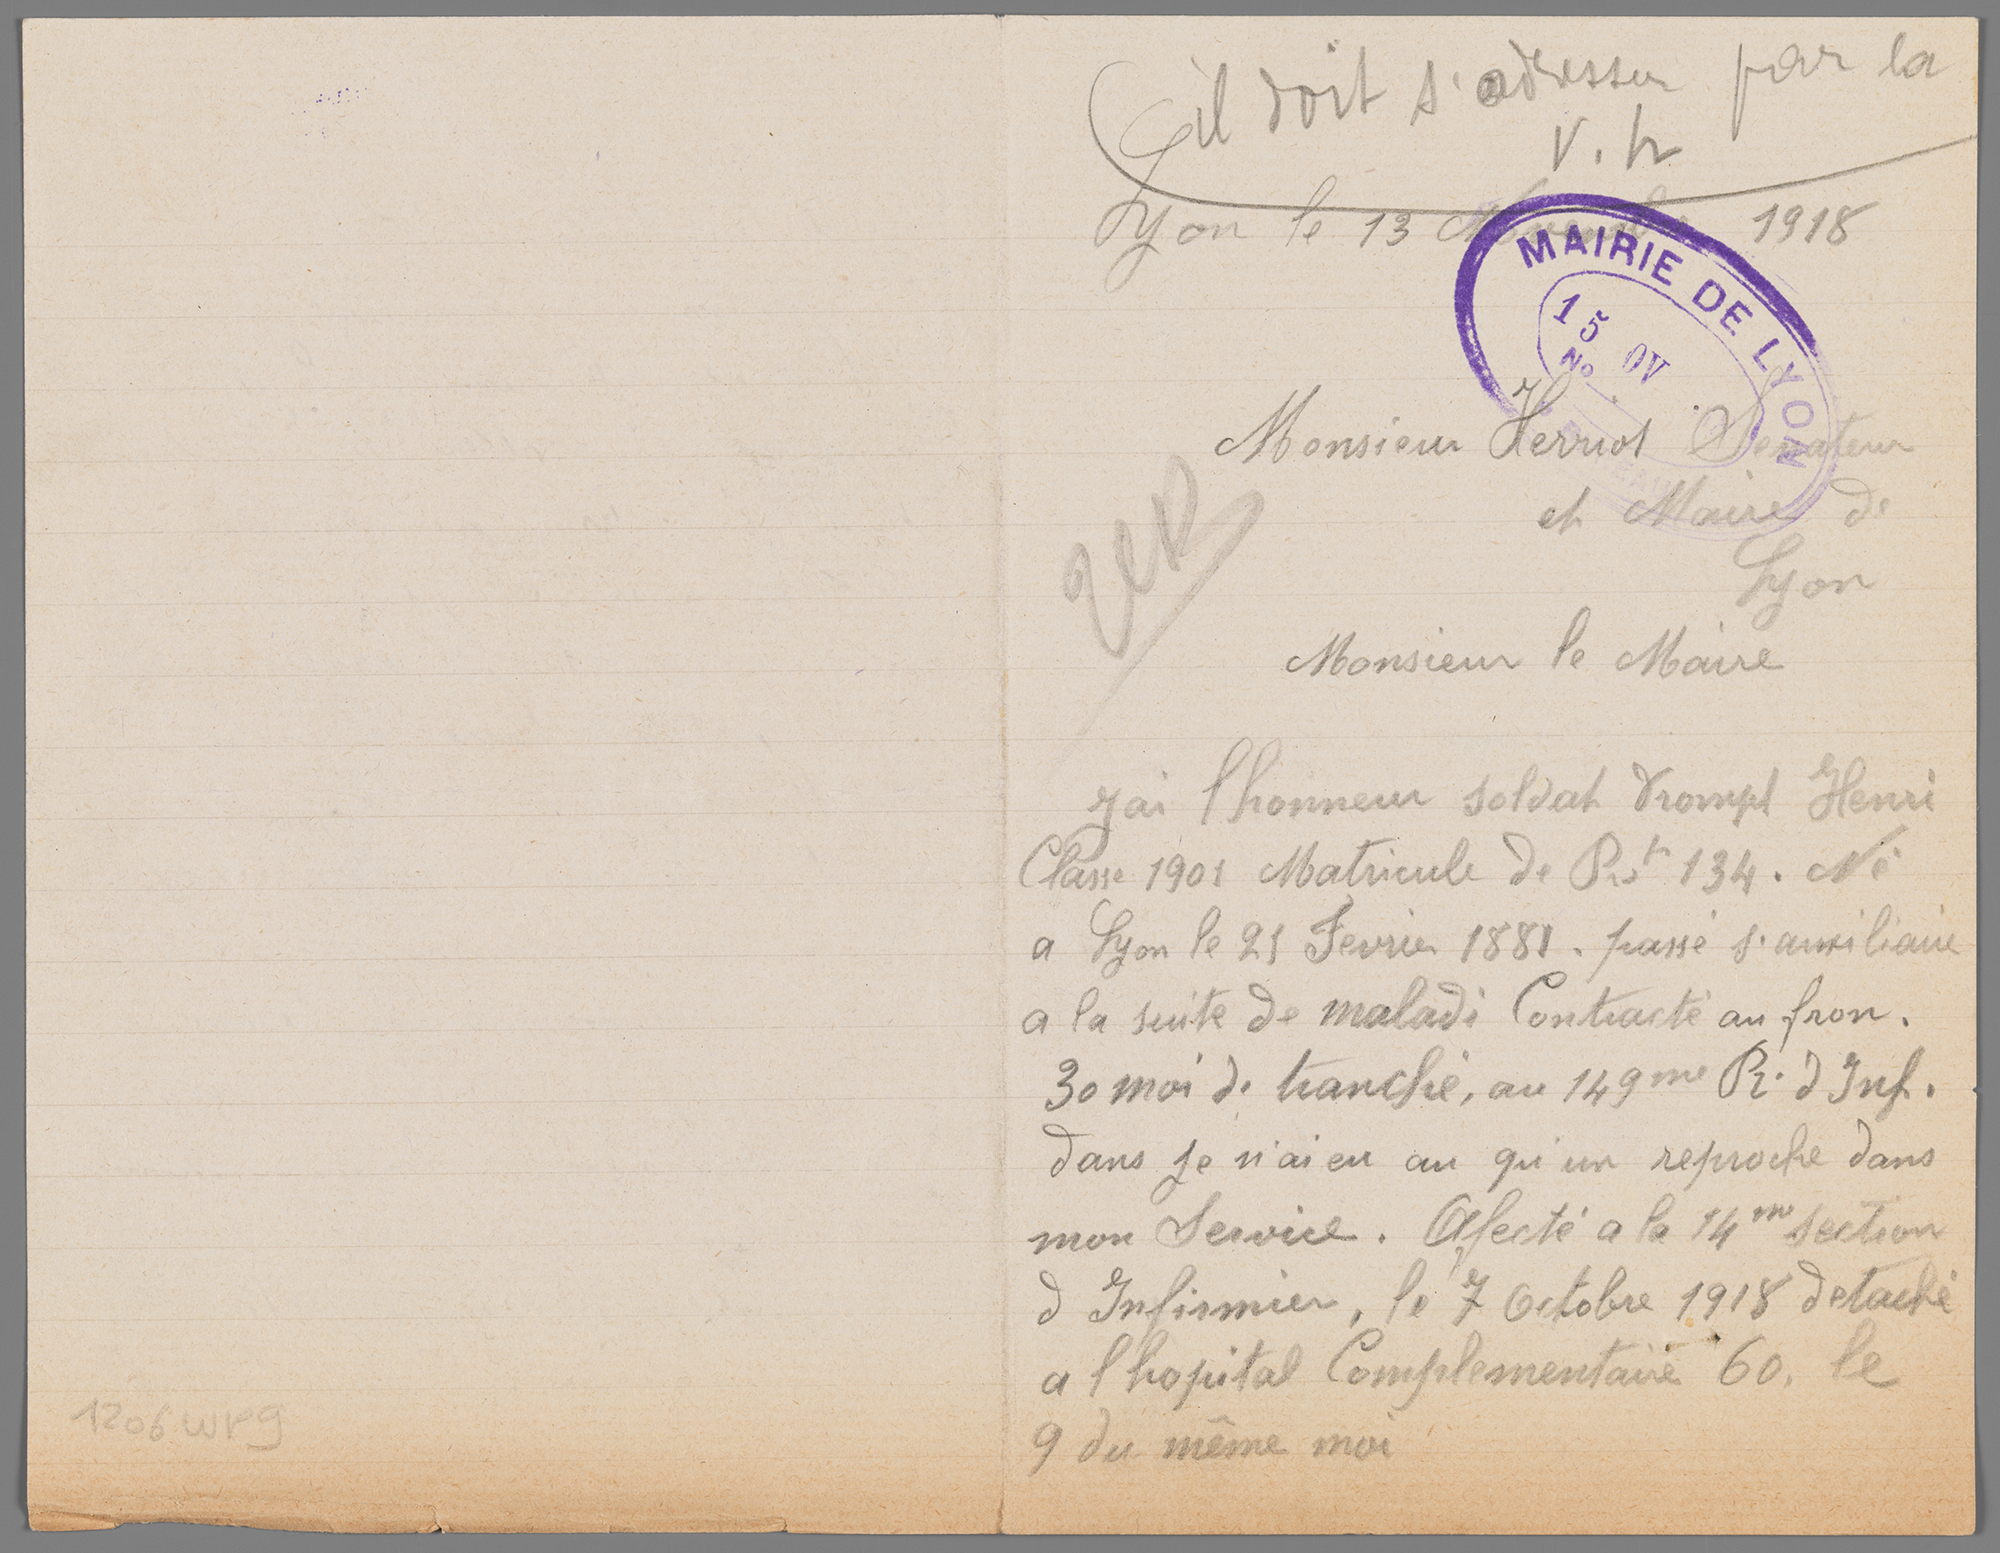 il doit s'adresser par la
V. h
Lyon le 13 Novembre 1918
MAIRIE DE LYON
15 OV
No
Monsieur Herriot Senateur
et Maire de
Lyon
Monsieur le Maire
J'ai l honneur soldat Trompt Henri
Classe 1901 Matricule de Rt 134. Né
a Lyon le 21 Fevrier 1881. passé s. auxiliaire
a la suite de maladi Contracté au fron.
30 moi de tranché, au 149me R. d Inf.
dans je n'ai eu au qu'un reproche dans
mon Service. Afecté a la 14me section
d Infirmier, le 7 Octobre 1918 detaché
a l hopital Complementaire 60. le
9 du même moi
1206 WP 9